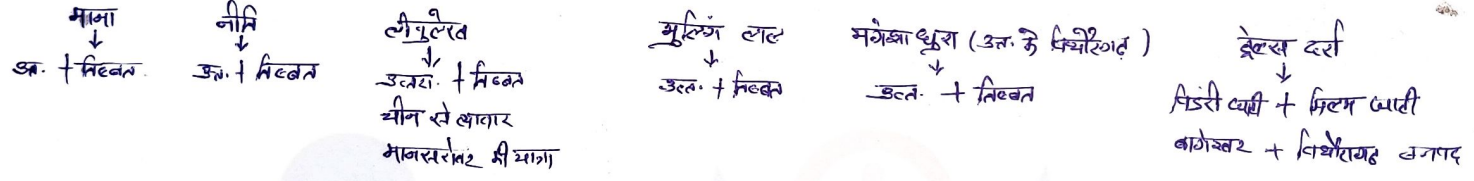 माना
↓
उत्त. + तिब्बत
नीति
↓
उत्त. + तिब्बत
लीपुलेख
↓
उत्तरा. + तिब्बत
चीन से व्यापार
मानसरोवर की यात्रा
मुलिंग ला
↓
उत्त. + तिब्बत
मंगेशा धुरा (उत्त. के पिथौरागढ़)
↓
उत्त. + तिब्बत
ट्रेल्स दर्रा
↓
पिंडारी घाटी + मिलम घाटी
बागेश्वर + पिथौरागढ़ जनपद